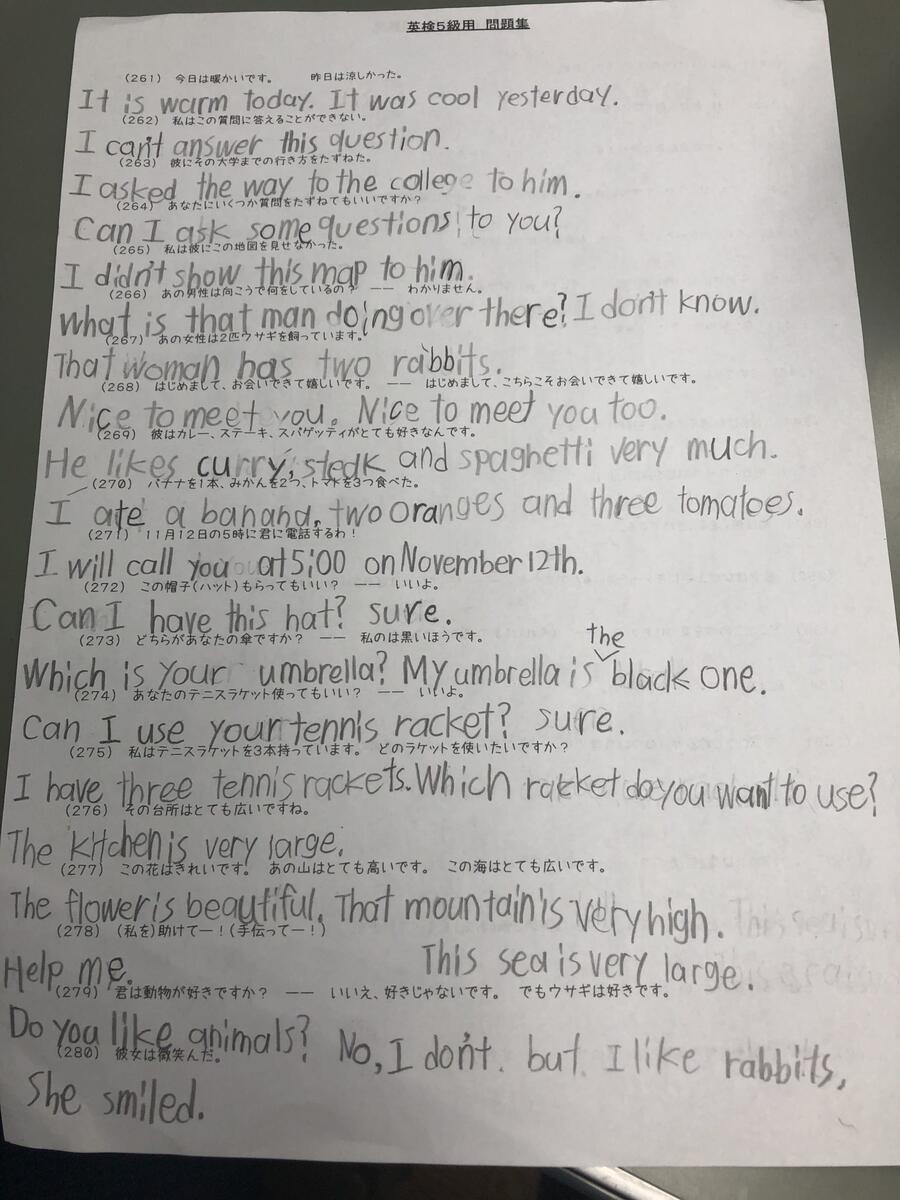 英検5級用 問題集
(261) 今日は暖かいです。 昨日は涼しかった。
It is warm today. It was cool yesterday.
(262) 私はこの質問に答えることができない。
I can't answer this question.
(263) 彼にその大学までの行き方をたずねた。
I asked the way to the college to him.
(264) あなたにいくつか質問をたずねてもいいですか?
Can I ask some questions to you?
(265) 私は彼にこの地図を見せなかった。
I didn't show this map to him.
(266) あの男性は向こうで何をしているの? —— わかりません。
What is that man doing over there? I don't know.
(267) あの女性は2匹ウサギを飼っています。
That woman has two rabbits.
(268) はじめまして、お会いできて嬉しいです。 —— はじめまして、こちらこそお会いできて嬉しいです。
Nice to meet you. Nice to meet you too.
(269) 彼はカレー、ステーキ、スパゲッティがとても好きなんです。
He likes curry, steak and spaghetti very much.
(270) バナナを1本、みかんを2つ、トマトを3つ食べた。
I ate a banana, two oranges and three tomatoes.
(271) 11月12日の5時に君に電話するわ!
I will call you at 5:00 on November 12th.
(272) この帽子(ハット)もらってもいい? —— いいよ。
Can I have this hat? sure.
(273) どちらがあなたの傘ですか? —— 私のは黒いほうです。
the
Which is your umbrella? My umbrella is black one.
(274) あなたのテニスラケット使ってもいい? —— いいよ。
Can I use your tennis racket? sure.
(275) 私はテニスラケットを3本持っています。 どのラケットを使いたいですか?
I have three tennis rackets. Which racket do you want to use?
(276) その台所はとても広いですね。
The kitchen is very large.
(277) この花はきれいです。 あの山はとても高いです。 この海はとても広いです。
The flower is beautiful. That mountain is very high.
(278) (私を)助けてー!(手伝ってー!)
This sea is very large.
Help me.
(279) 君は動物が好きですか? —— いいえ、好きじゃないです。 でもウサギは好きです。
Do you like animals? No, I don't. but I like rabbits.
(280) 彼女は微笑んだ。
She smiled.